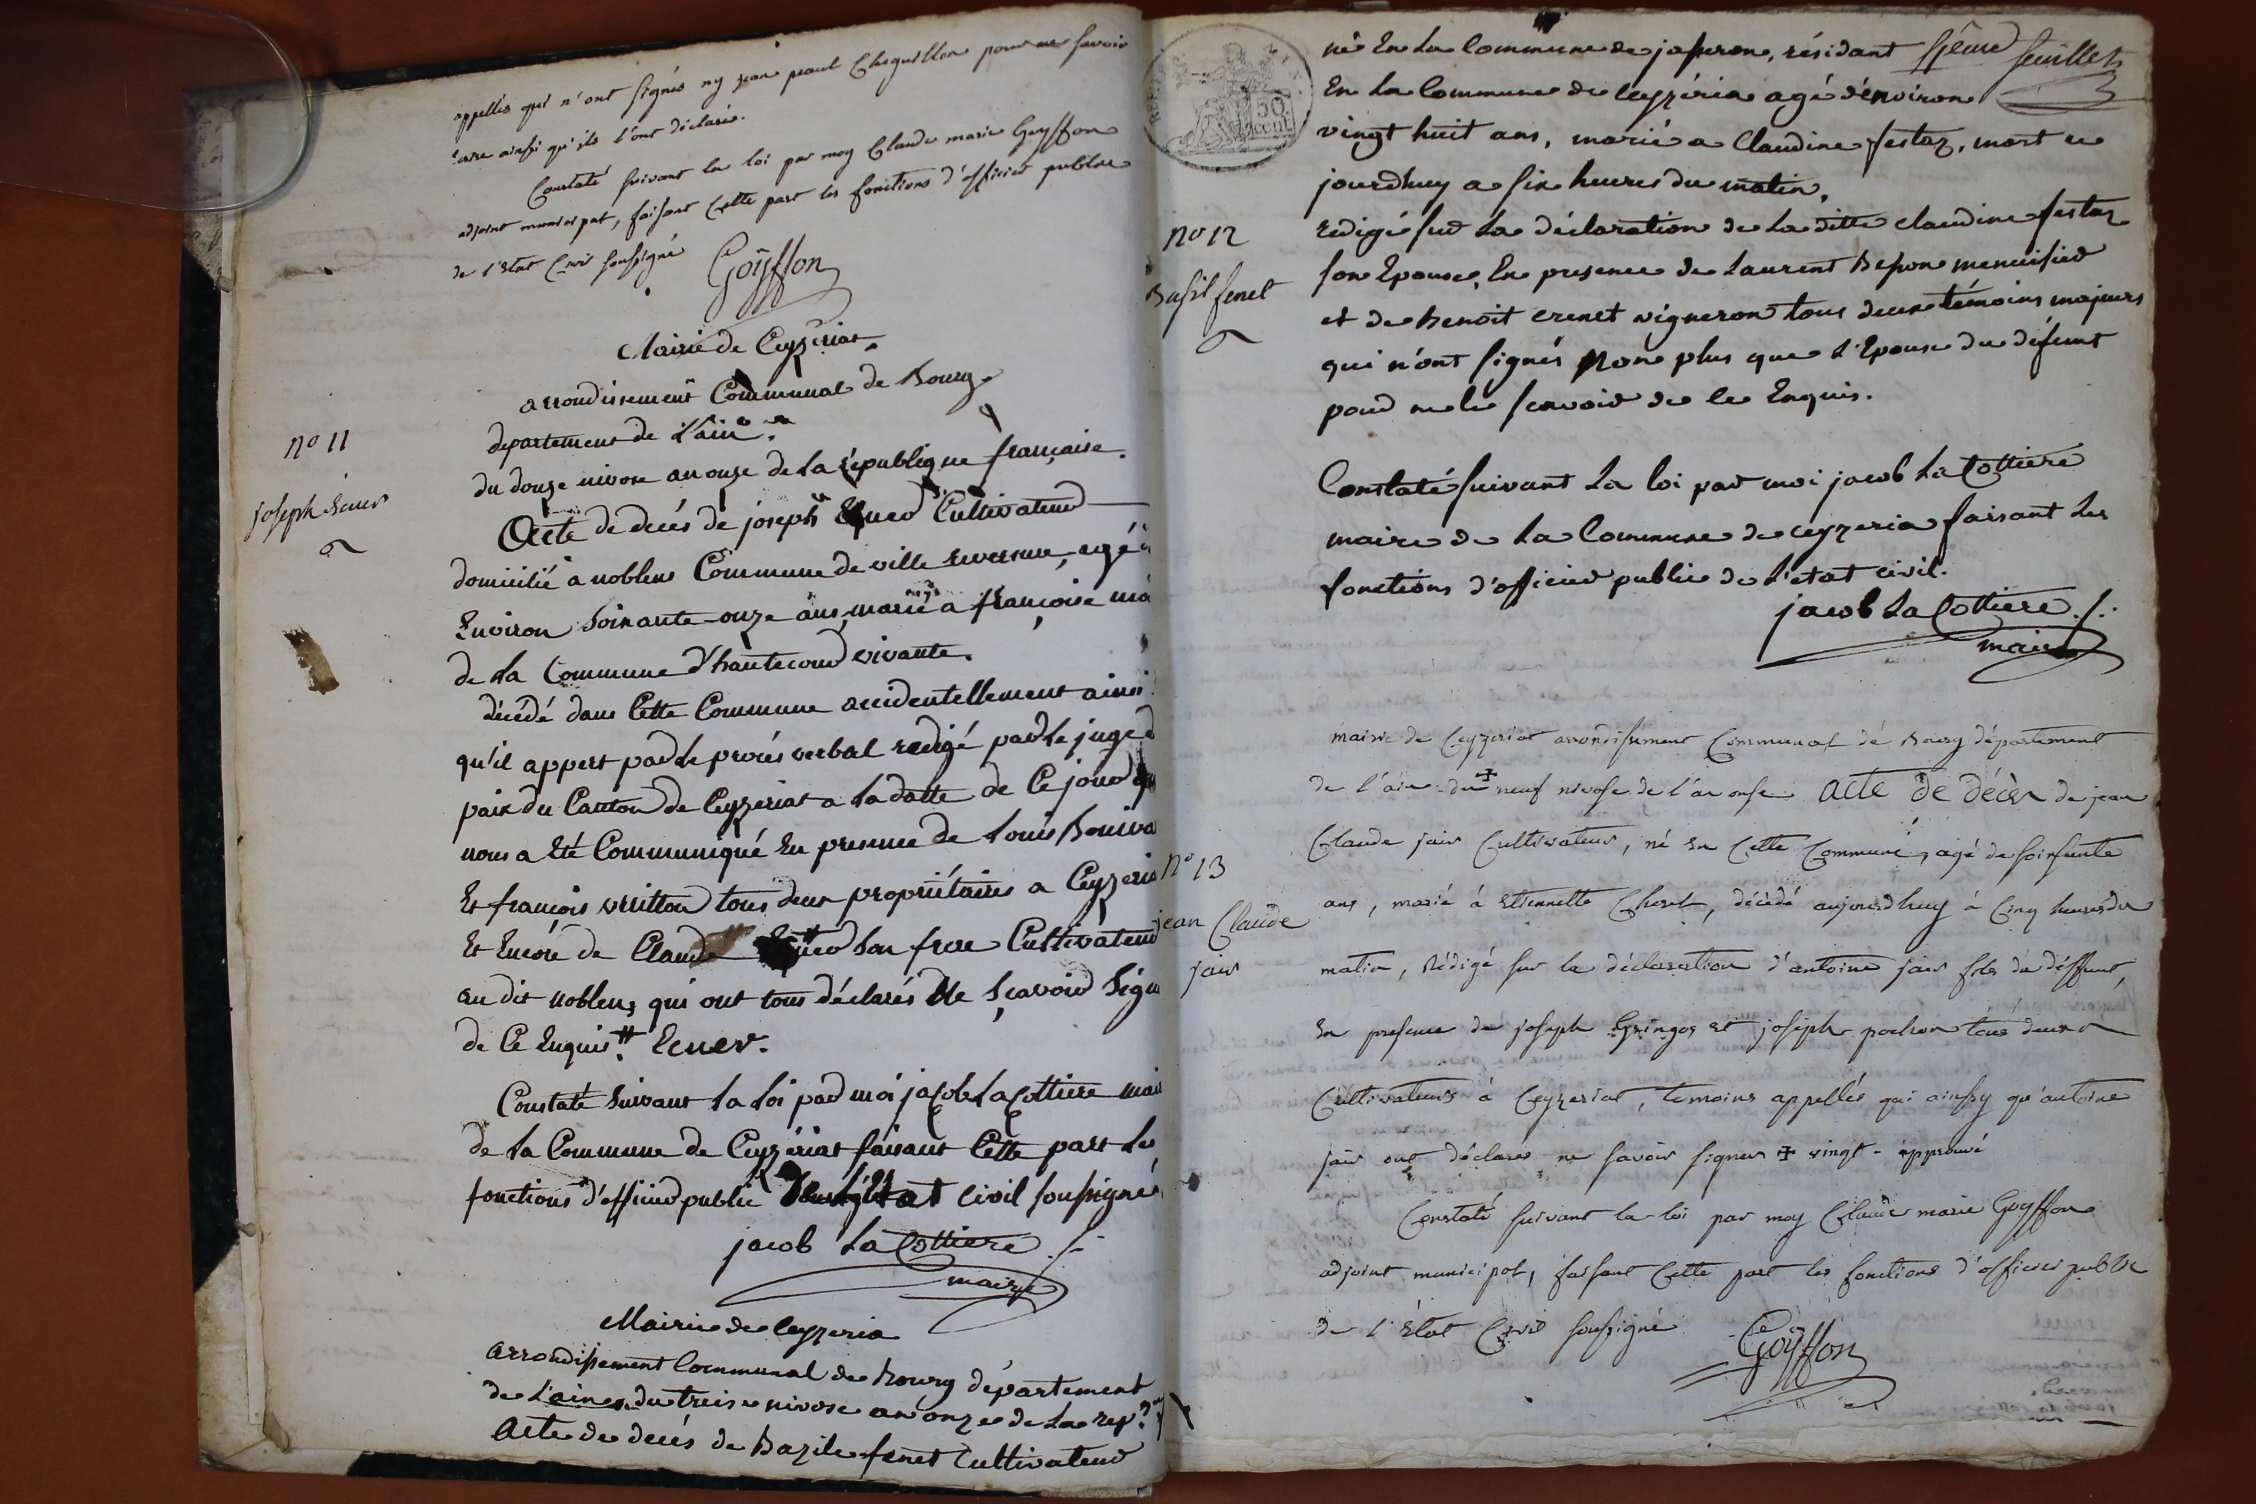 appellés qui n'ont signés ny jean paul Cheguillon pour ne savoir
faire ainsi qu'ils l'ont déclaré.
Constaté suivant la loi par moy Claude marie Goyffon
adjoint municipal, faisant Cette part les fonctions d'officier public
de l'Etat Civil soussigné
Goÿffon
Mairie de Ceyzériat
arrondissement Communal de Bourg
departement de l'ain
no 11
du douze nivose an onze de la république française.
joseph Ecuer
Acte de decés de joseph Ecuer Cultivateur
domicilié a noblens Commune de ville reversure, agé d
Environ soixante onze ans, marié a françoise
de la Commune d'hautecour vivante.
décédé dans Cette Commune accidentellement ainsi
qu'il appert par le procés verbal redigé par le juge d
paix du Canton de Ceyzeriat a la datte de Ce jour
nous a Eté Communiqué En presence de Louis
Et françois tous deux propriétaires a Ceyzeria
Et Encore de Claude son frere Cultivateur
au dit noblens qui ont tous déclarés Ne sçavoir sign
de Ce Enquis. Ecuer.
Constaté suivant la loi par moi jacob La Cottiere mair
de la Commune de Ceyzériat faisant Cette part les
fonctions d'officier public Etat civil soussigné
jacob La Cottiere
maire
Mairie de Ceyzeria
arrondissement Communal de Bourg département
de L'ain du treise nivose an onze de la rep.
Acte de decés de Bazile fenet Cultivateur
né En La Commune de jasseron, résidant
feuillet
En La Commune de Ceyzéria agé d'environ
vingt huit ans, marié a Claudine festaz, mort ce
jourdhuy a six heures du matin.
no 12
redigé sur La déclaration de La ditte claudine festaz
son Epouse, En presence de Laurent Besson menuisier
Basil fenet
et de Benoit crenet vigneron tous deux témoins majeurs
qui n'ont signés Non plus que L'Epouse du défunt
pour ne le scavoir de ce Enquis.
Constaté suivant La loi par moi jacob La Cottiere
maire de La Commune de ceyzeria faisant Les
fonctions d'officier public de L'etat civil.
jacob La Cottiere
maire
mairie de Ceyzeriat arrondissement Communal de Bourg département
de l'ain du + neuf nivose de l'an onse Acte de décès de jean
no 13
Claude jair Cultivateur, né En Cette Commune, agé de soixante
ans, marié à Etiennette, décédé aujourdhuy à Cinq heures du
jean Claude
jair
matin, Rédigé sur la déclaration d'antoine jair fils du déffunt,
En presence de joseph Gringoz Et joseph pochon tous deux
Cultivateurs à Ceyzeriat, temoins appellés qui ainsy qu'antoine
jair ont déclarés ne savoir signer + vingt - approuvé
Constaté suivant la loi par moy Claude marie Goyffon
adjoint municipal, faisant Cette part les fonctions d'officier public
de l'Etat Civil soussigné
Goÿffon